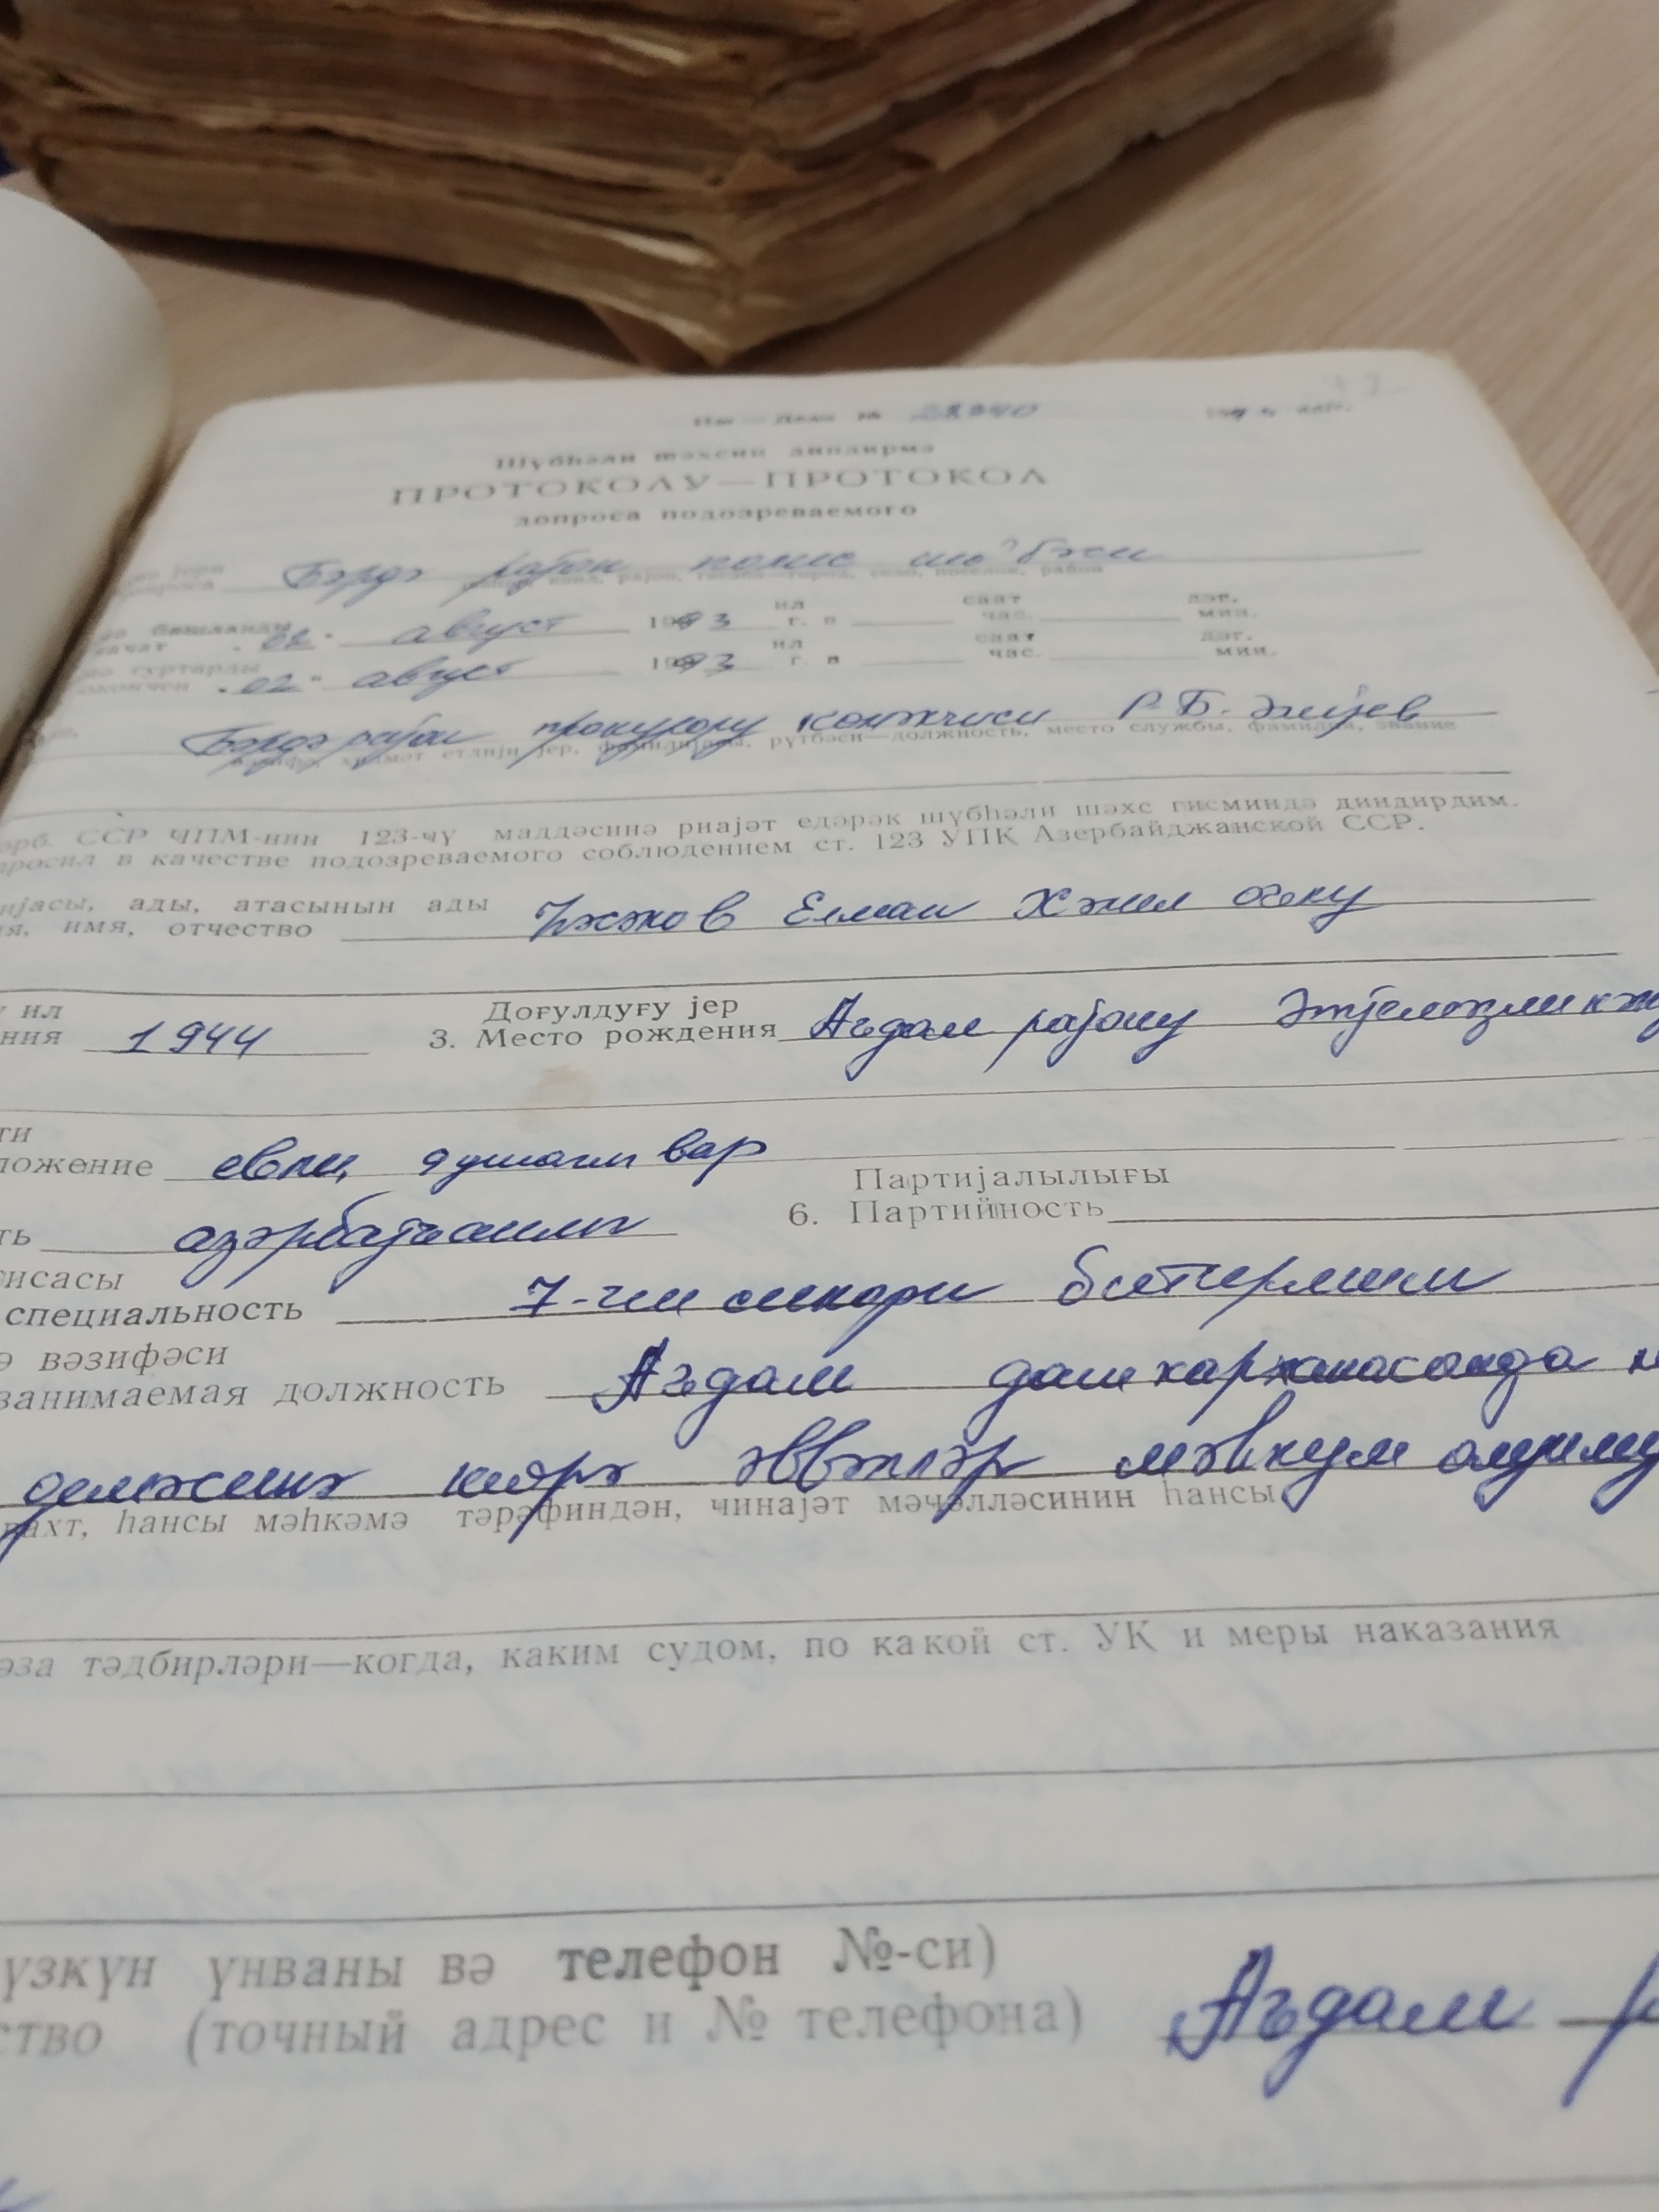 Иш — Дело №
Шүбһәли шәхсин диндирмә
ПРОТОКОЛУ—ПРОТОКОЛ
допроса подозреваемого
Бәрдә рајон полис шө'бәси
башланды 02. август 1993 ил саат дәг.
начат г. в час. мин.
гуртарды "02" август 1993 ил саат дәг.
окончен г. в час. мин.
Бәрдә рајон прокурору көмәкчиси Р.Б.
хидмәт етдији јер, фамилијасы, рүтбәси—должность, место службы, фамилия, звание
ССР ҸПМ-нин 123-ҹү маддәсинә риајәт едәрәк шүбһәли шәхс гисминдә диндирдим.
просил в качестве подозреваемого соблюдением ст. 123 УПК Азербайджанской ССР.
ијасы, ады, атасынын ады
ия, имя, отчество Елман Хәлил оғлу
ил
ния 1944
Доғулдуғу јер
3. Место рождения Ағдам рајону
ти
ложение евли, 9 ушағы вар
Партијалылығы
6. Партийность
ть азәрбајҹанлы
исасы
специальность 7-ҹи синфи битирмиш
ә вәзифәси
занимаемая должность Ағдам даш карханасында
демәсинә көрә әввәлләр мәһкум олунму
вахт, һансы мәһкәмә тәрәфиндән, ҹинајәт мәҹәлләсинин һансы
әза тәдбирләри—когда, каким судом, по какой ст. УК и меры наказания
үзкүн үнваны вә телефон №-си)
ство (точный адрес и № телефона) Ағдам р